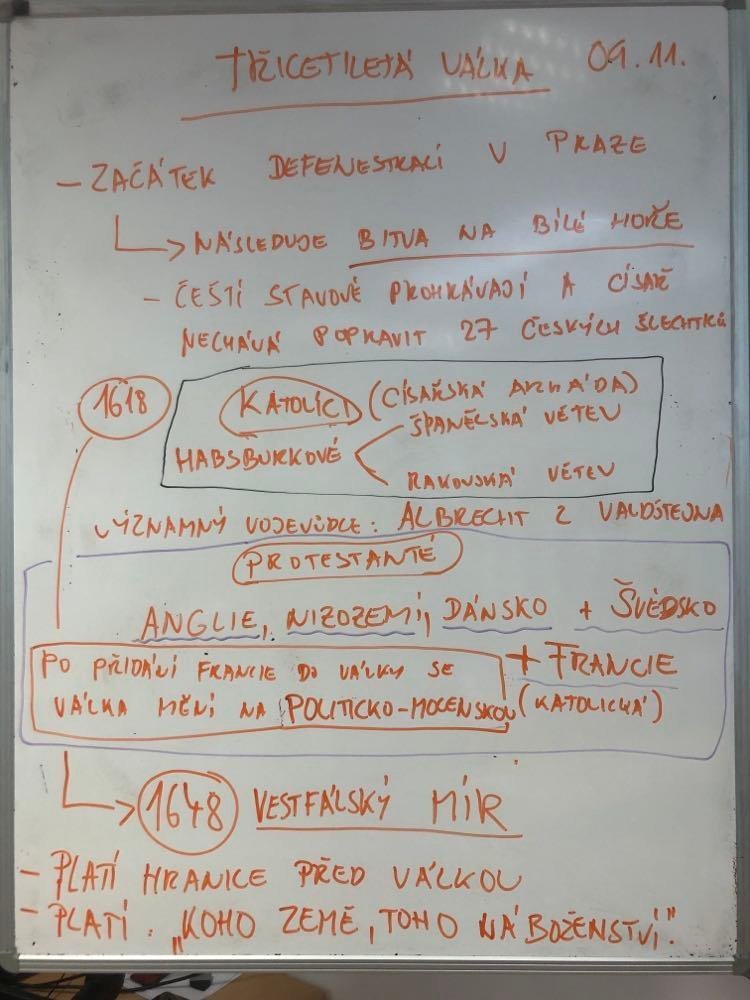 TŘICETILETÁ VÁLKA 09.11.
- ZAČÁTEK DEFENESTRACÍ V PRAZE
NÁSLEDUJE BITVA NA BÍLÉ HOŘE
- ČEŠTÍ STAVOVÉ PROHRÁVAJÍ A CÍSAŘ
NECHÁVÁ POPRAVIT 27 ČESKÝCH ŠLECHTICŮ
1618
KATOLÍCI (CÍSAŘSKÁ ARMÁDA)
ŠPANĚLSKÁ VĚTEV
HABSBURKOVÉ
RAKOUSKÁ VĚTEV
VÝZNAMNÝ VOJEVŮDCE: ALBRECHT Z VALDŠTEJNA
PROTESTANTÉ
ANGLIE, NIZOZEMÍ, DÁNSKO + ŠVÉDSKO
+ FRANCIE
(KATOLICKÁ)
PO PŘIDÁNÍ FRANCIE DO VÁLKY SE
VÁLKA MĚNÍ NA POLITICKO-MOCENSKOU
1648 VESTFÁLSKÝ MÍR
- PLATÍ HRANICE PŘED VÁLKOU
- PLATÍ: „KOHO ZEMĚ, TOHO NÁBOŽENSTVÍ."